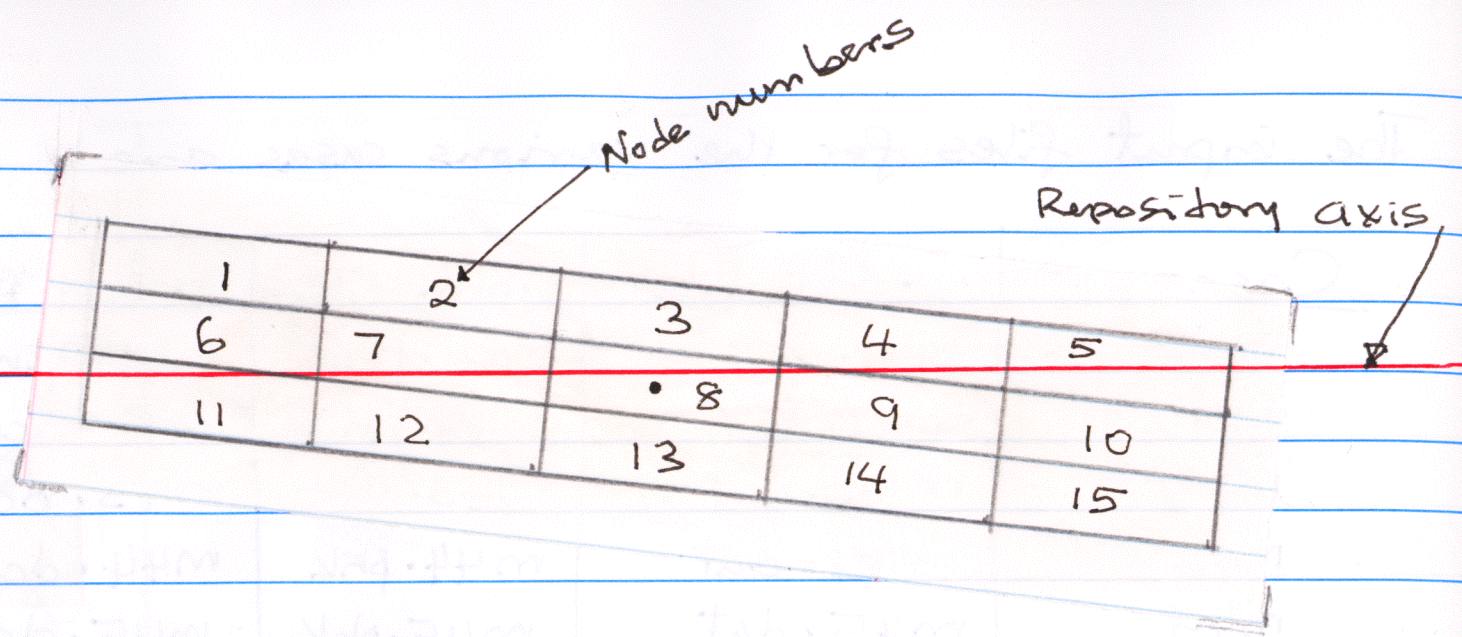 Node numbers
Repository axis
1 2 3 4 5
6 7 8 9 10
11 12 13 14 15